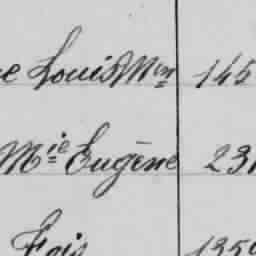 e Louis Min 145
Mie Eugène 231
Fois 1359